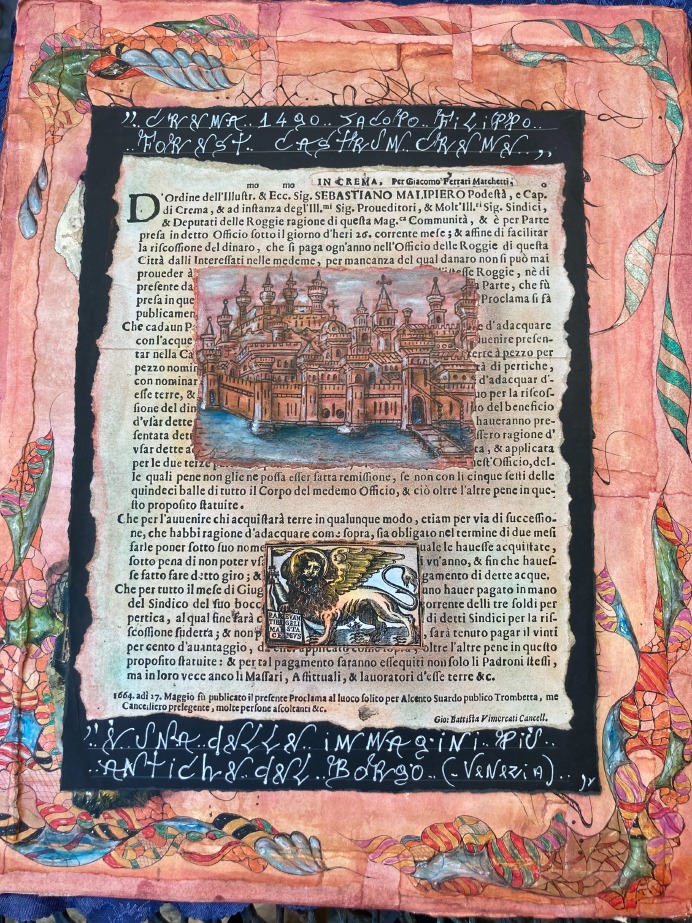 ,, CREMA.. 1490.. JACOPO.. FILIPPO..
FOREST.. CASTRUM CREME ,,
IN CREMA, Per Giacomo Ferrari Marchetti,
D'Ordine dell'Illustr. & Ecc. Sig. SEBASTIANO MALIPIERO Podestà, e Cap.
di Crema, & ad instanza degl'Ill.mi Sig. Proueditori, & Molt'Ill.ri Sig. Sindici,
& Deputati delle Roggie ragione di questa Mag.ca Communità, & è per Parte
presa in detto Officio sotto il giorno d'heri 26. corrente mese; & affine di facilitar
la riscossione del dinaro, che si paga ogn'anno nell'Officio delle Roggie di questa
Città dalli Interessati nelle medeme, per mancanza del qual danaro non si può mai
proueder à Roggie, nè di
presente da Parte, che fù
presa in que Proclama si fà
publicamen
Che cadaun P d'adacquare
con l'acque presen-
tar nella Ca terre à pezzo per
pezzo nomin di pertiche,
con nominar d'adacquar d'-
esse terre, & per la riscos-
sione del din del beneficio
d'vsar dette haueranno pre-
sentata dett ragione d'
vsar dette a & applicata
per le due terze Officio, del-
le quali pene non gli ne possa esser fatta remissione, se non con li cinque sesti delle
quindeci balle di tutto il Corpo del medemo Officio, & ciò oltre l'altre pene in que-
sto proposito statuite.
Che per l'auuenire chi acquistarà terre in qualunque modo, etiam per via di successio-
ne, che habbi ragione d'adacquare come sopra, sia obligato nel termine di due mesi
farle poner sotto suo nome quale le hauesse acquistate,
sotto pena di non poter vs vn'anno, & fin che haues-
se fatto fare detto giro; & pagamento di dette acque.
Che per tutto il mese di Giug hauer pagato in mano
del Sindico del suo bocc corrente delli tre soldi per
pertica, al qual fine sarà c di detti Sindici per la ris-
scossione sudetta; & non p sarà tenuto pagar il vinti
per cento d'auantaggio, oltre l'altre pene in questo
proposito statuite: & per tal pagamento saranno essequiti non solo li Padroni stessi,
ma in loro vece anco li Massari, Affittuali, & lauoratori d'esse terre &c.
1664. adi 27. Maggio fù publicato il presente Proclama al luoco solito per Alcento Suardo publico Trombetta, me
Cancelliero prelegente, molte persone ascoltanti &c.
Gio: Battista Vimercati Cancell.
,, È UNA.. dELLE.. iMMAgiNi.. PiÙ..
ANTiCHE.. dEL.. BORgO.. (- VENEZiA)..,,